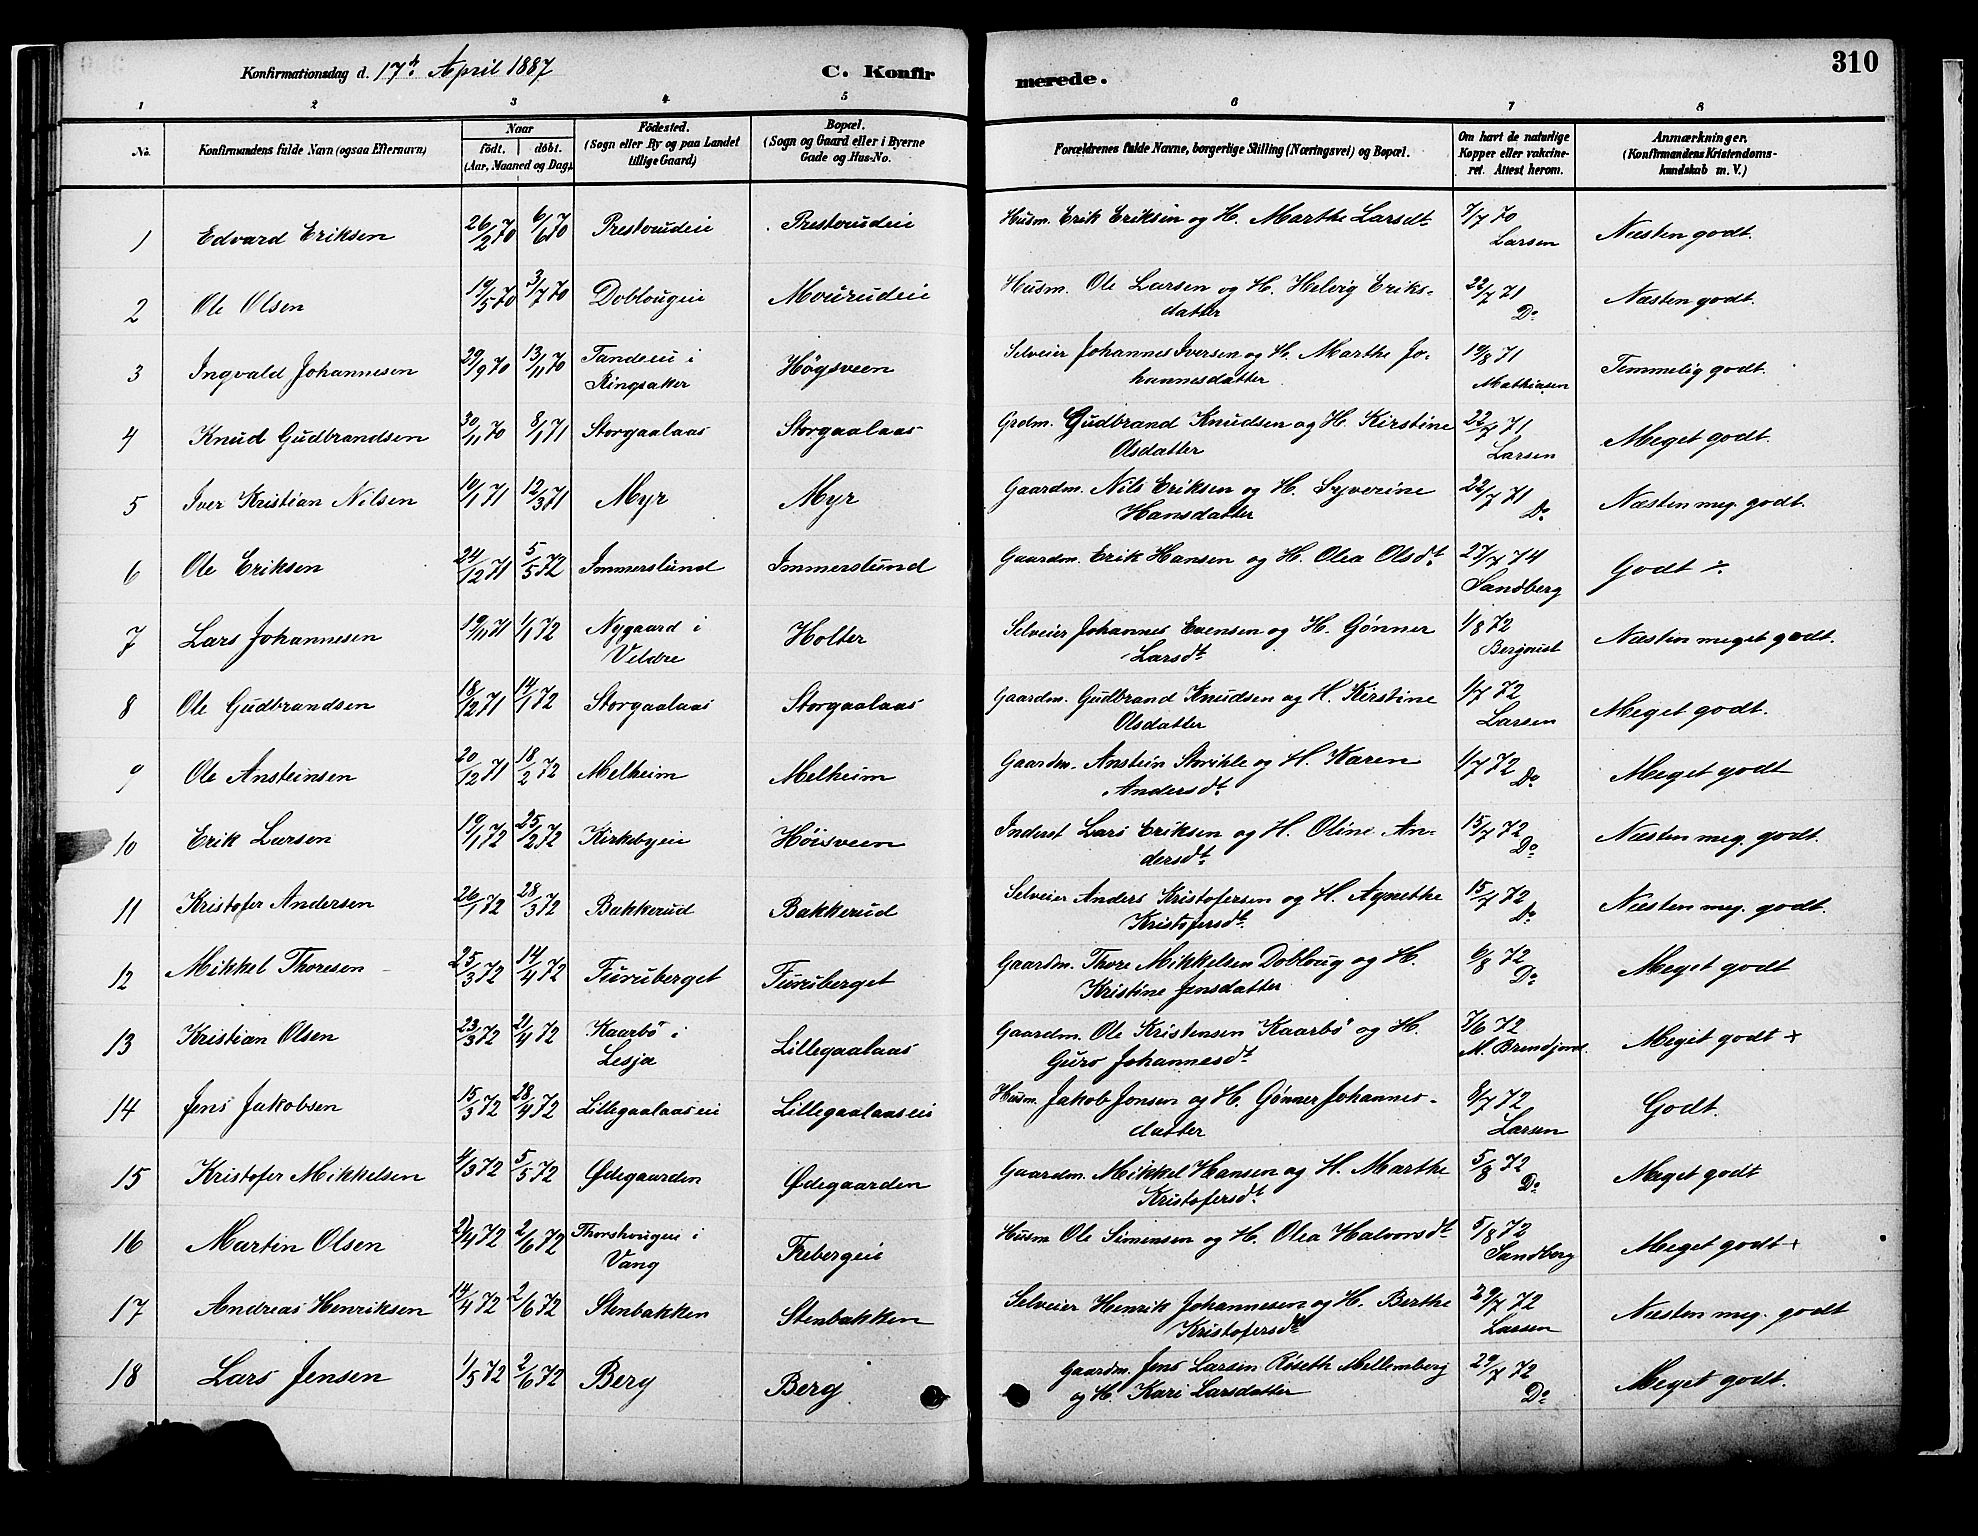 310
Konfirmationsdag d. 17de April 1887 C. Konfirmerede.
1 2 3 4 5 6 7 8
No. Konfirmandens fulde Navn (ogsaa Efternavn) Naar født. døbt. (Aar, Maaned og Dag). Fødested. (Sogn eller By og paa Landet tillige Gaard) Bopæl. (Sogn og Gaard eller i Byerne Gade og Hus-No. Forældrenes fulde Navne, borgerlige Stilling (Næringsvei) og Bopæl. Om havt de naturlige Kopper eller vakcineret. Attest herom. Anmærkninger. (Konfirmandens Kristendomskundskab m. V.)
1 Edvard Eriksen 26/2 70 6/6 70 Prestrudeie Prestrudeie Husm. Erik Eriksen og H. Marthe Larsdt 7/7 70 Larsen Næsten godt.
2 Ole Olsen 19/5 70 3/7 70 Doblougeie Mourudeie Husm. Ole Larsen og H. Helvig Eriksdatter 22/7 71 Do Næsten godt.
3 Ingvald Johannesen 29/9 70 13/11 70 Tandeeie i Ringsaker Høgsveen Selveier Johannes Iversen og H. Marthe Johannesdatter 19/8 71 Mathiasen Temmelig godt.
4 Knud Gudbrandsen 30/11 70 8/1 71 Storgaalaas Storgaalaas Grdm. Gudbrand Knudsen og H. Kirstine Olsdatter 22/7 71 Larsen Meget godt.
5 Iver Kristian Nilsen 10/1 71 12/3 71 Myr Myr Gaardm. Nils Eriksen og H. Syverine Hansdatter 22/7 71 Do Næsten meg. godt.
6 Ole Eriksen 24/12 71 5/5 72 Immerslund Immerslund Gaardm. Erik Hansen og H. Olea Olsdt 27/7 74 Sandberg Godt ÷
7 Lars Johannesen 19/11 71 1/1 72 Nygaard i Veldre Holter Selveier Johannes Evensen og H. Gønner Larsdt 1/8 72 Bergqvist Næsten meget godt.
8 Ole Gudbrandsen 18/12 71 14/1 72 Storgaalaas Storgaalaas Gaardm. Gudbrand Knudsen og H. Kirstine Olsdatter 1/7 72 Larsen Meget godt.
9 Ole Ansteinsen 20/12 71 18/2 72 Melheim Melheim Gaardm. Anstein og H. Karen Andersdt 1/7 72 Do Meget godt
10 Erik Larsen 19/1 72 25/2 72 Kirkebyeie Høisveen Inderst Lars Eriksen og H. Oline Andersdt 15/7 72 Do Næsten meg. godt.
11 Kristofer Andersen 26/1 72 28/3 72 Bakkerud Bakkerud Selveier Anders Kristofersen og H. Agnethe Kristofersdt. 15/7 72 Do Næsten meg. godt.
12 Mikkel Thoresen 25/3 72 14/4 72 Furuberget Furuberget Gaardm. Thore Mikkelsen Dobloug og H. Kristine Jensdatter 6/8 72 Do Meget godt
13 Kristian Olsen 23/3 72 21/4 72 Kaarbø i Lesja Lillegaalaas Gaardm. Ole Kristensen Kaarbø og H. Guro Johannesdt 7/6 72 M. Brendjord. Meget godt +
14 Jens Jakobsen 15/3 72 28/4 72 Lillegaalaaseie Lillegaalaaseie Husm. Jakob Jonsen og H. Gønner Johannesdatter 8/7 72 Larsen Godt.
15 Kristofer Mikkelsen 4/3 72 5/5 72 Ødegaarden Ødegaarden Gaardm. Mikkel Hansen og H. Marthe Kristofersdt 5/8 72 Do Meget godt
16 Martin Olsen 21/4 72 2/6 72 Thorshougeie i Vang Frebergeie Husm Ole Simensen og H. Olea Halvorsdt 5/8 72 Sandberg Meget godt +
17 Andreas Henriksen 14/4 72 2/6 72 Stenbakken Stenbakken Selveier Henrik Johannesen og H. Berthe Kristofersdt 29/7 72 Larsen Næsten meg. godt
18 Lars Jensen 1/5 72 2/6 72 Berg Berg Gaardm. Jens Larsen Røseth Mellemberg og H. Kari Larsdatter 29/7 72 Do Meget godt.